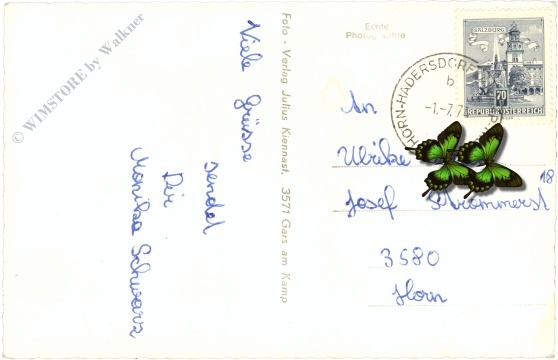 © WIMSTORE by Walkner
Viele Grüsse
sendet
Dir
Monika Schwarz
Foto - Verlag Julius Kiennast, 3571 Gars am Kamp
Echte
Photographie
SALZBURG
70
REPUBLIK ÖSTERREICH
HORN-HADERSDORF
b
-1.-7.7
An
Ulrike
Josef 18
3580
Horn